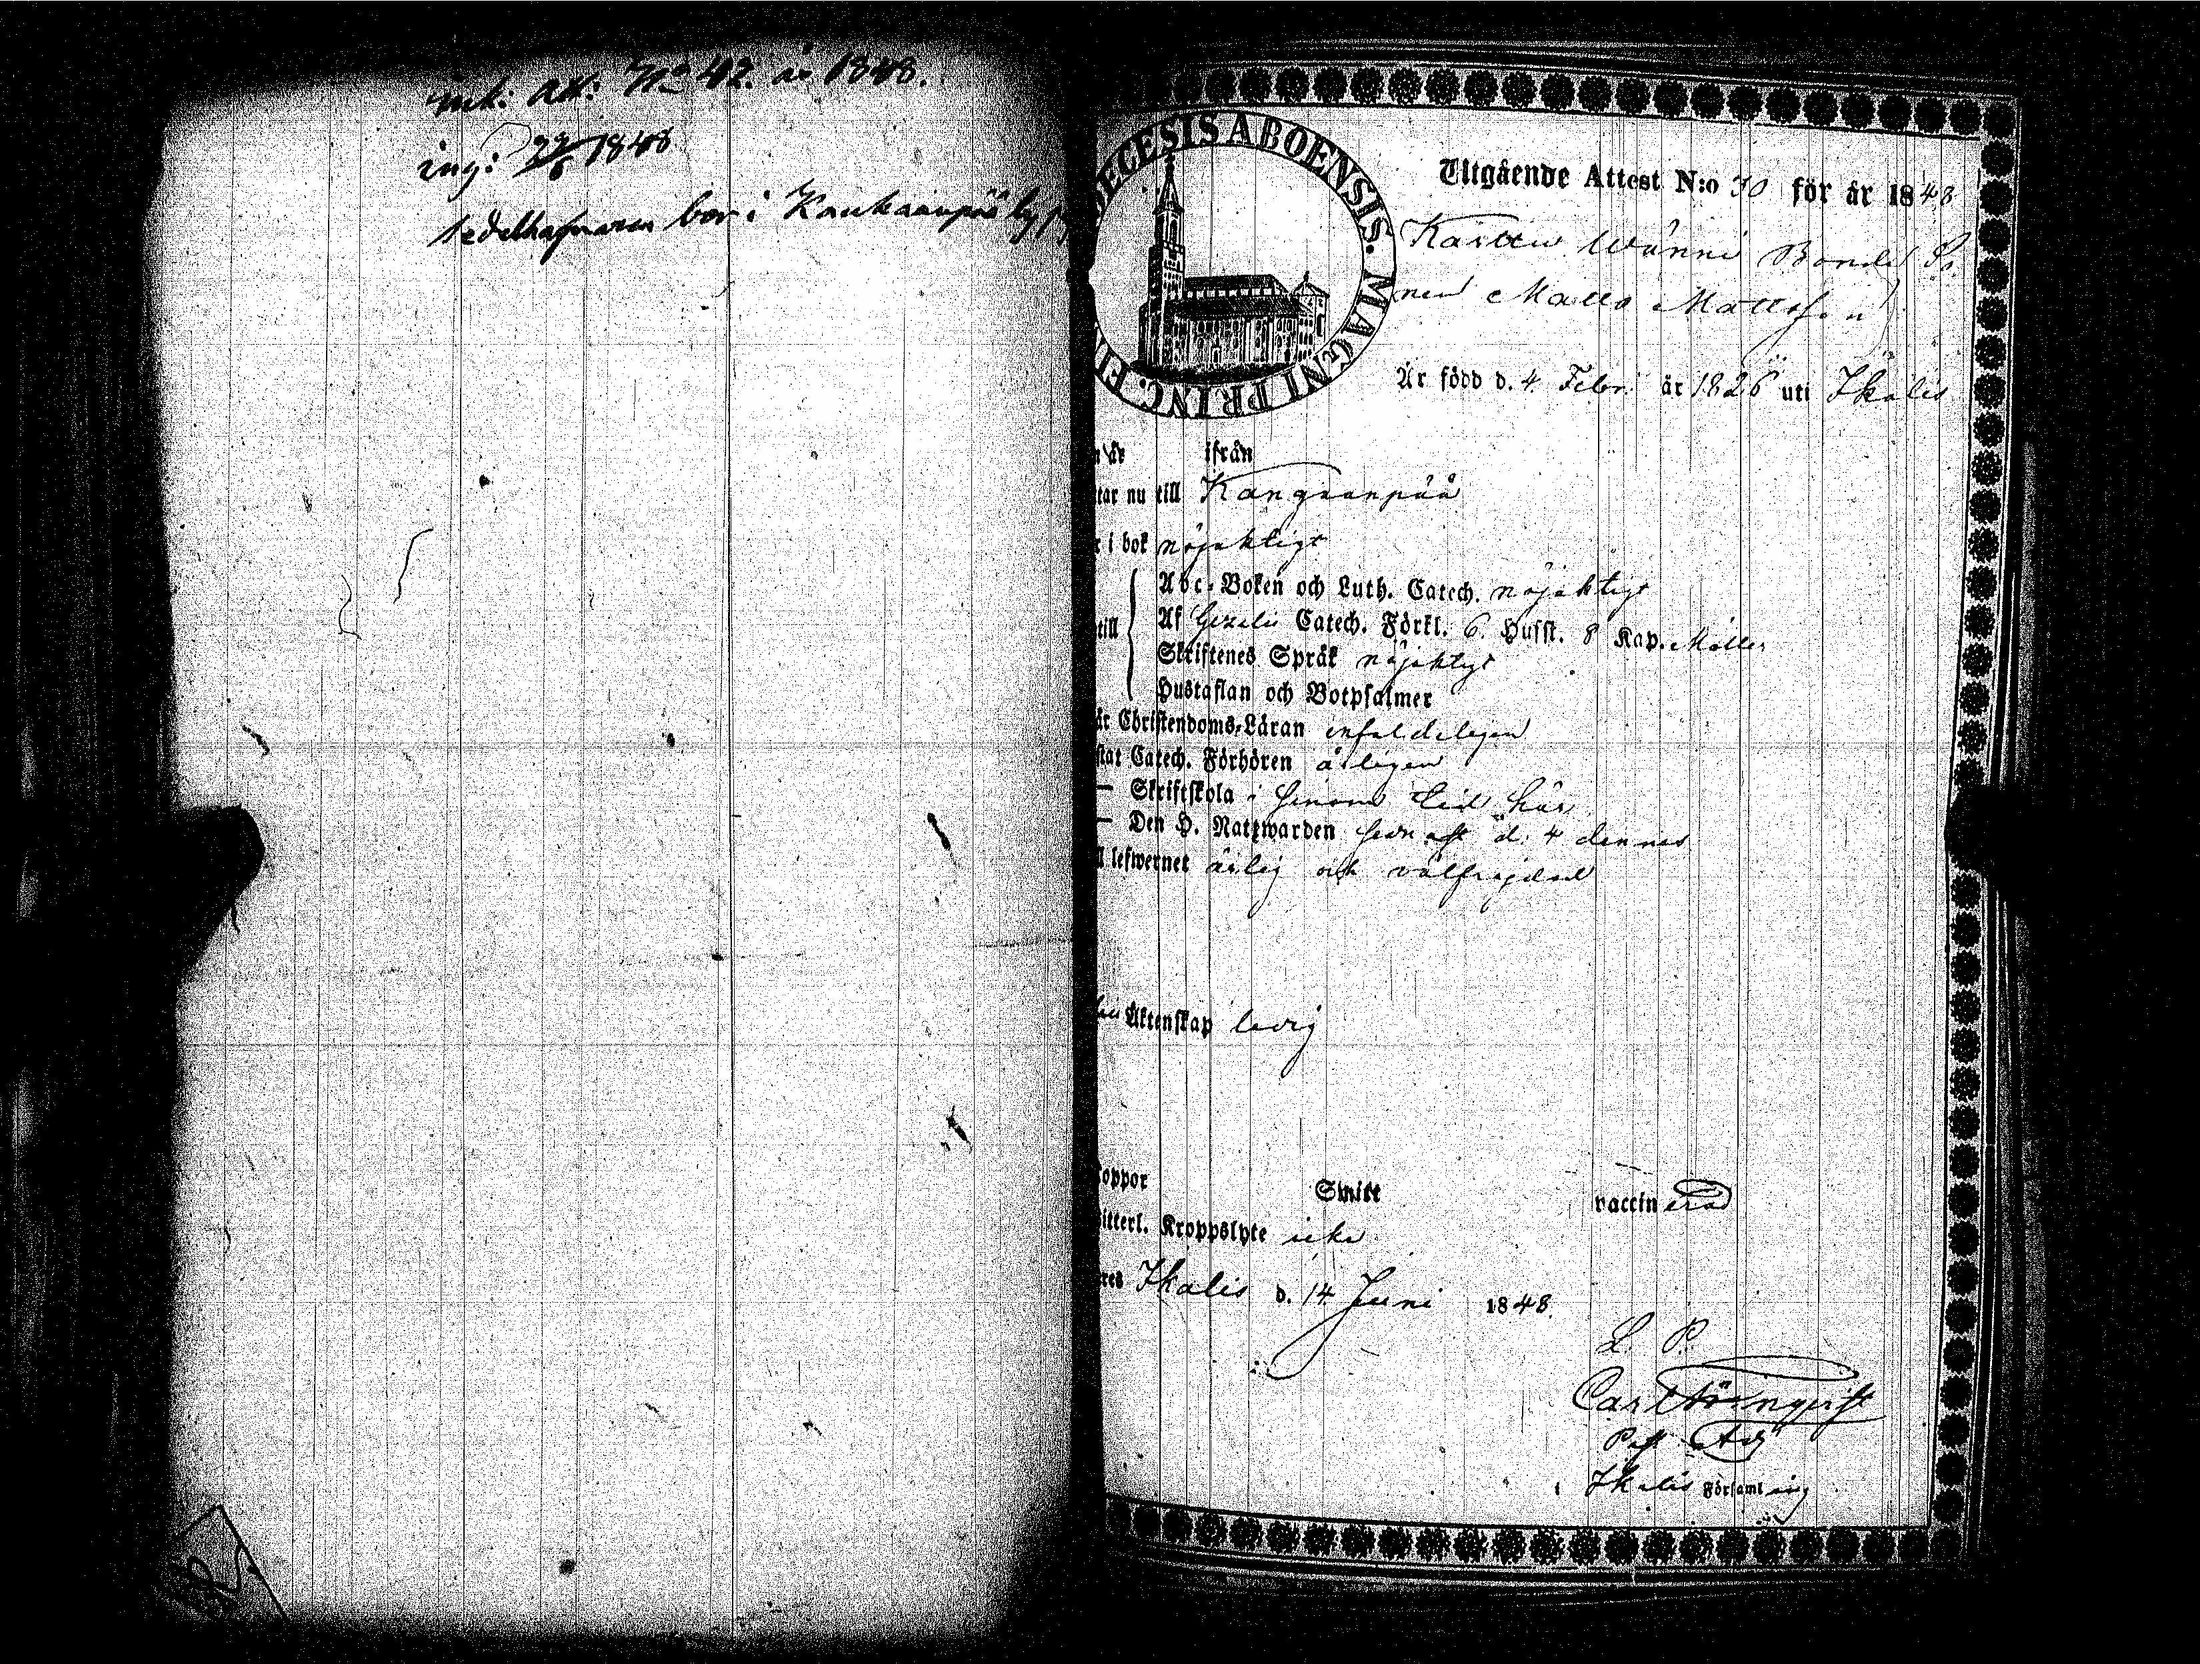 ink: att: No 42. år 1848.
ing: 22/6 1848
sedelhafvaren bor i Kankaanpää by
DIECESIS ABOENSIS. MAGNI PRINC. FI
Utgående Attest N:o 30 för år 1848
Bonde So
nen Matts Mattsson
Är född d. 4 Febr. år 1826 uti Ikalis
år ifrån
tar nu till Kangaanpää
i bok nöjaktigt
till
Abc-Boken och Luth. Catech. nöjaktigt
Af Gezelii Catech. Förkl. 6 Hufst. 8 Kap.
Skriftenes Språk nöjaktigt
Hustaflan och Botpsalmer
är Christendoms-Läran enfaldeligen
stat Catech. Förhören årligen
— Skriftskola i sinom tid här
— Den H. Nattwarden sednast d. 4 dennes
ll lefwernet ärlig och välfrejdad
Äktenskap ledig
oppor Smitt vaccinerad
itterl. Kroppslyte icke
res Ikalis d. 14 Juni 1848.
L. P.
Carl Törnqvist
Past. Adj
i Ikalis Församling